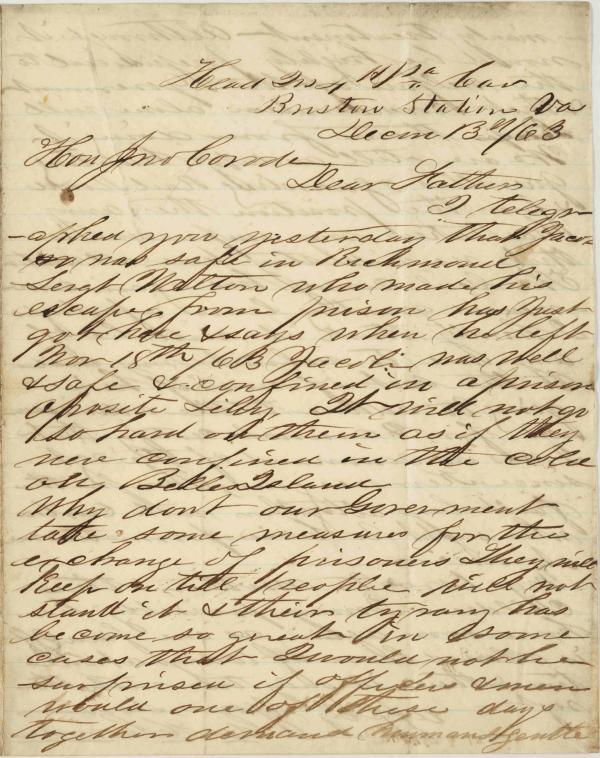 Head Qrs 4th Pa Cav
Bristow Station Va
Decem 13th/63
Hon Jno Covode
Dear Father
I telegr-
-aphed you yesterday that Jacob
was safe in Richmond
Sergt Wilton who made his
escape from prison has just
got here & says when he left
Nov 18th/63 Jacob was well
& safe & confined in a prison
oposite Libby It will not go
so hard on them as if they
were confined in the cold
on Belle Island
Why dont our Goverment
take some measures for the
exchange of prisoners They will
keep on till people will not
stand it & their tyrany has
become so great in some
cases that I would not be
surprised if officers & men
would one of these days
together demand human & gentle